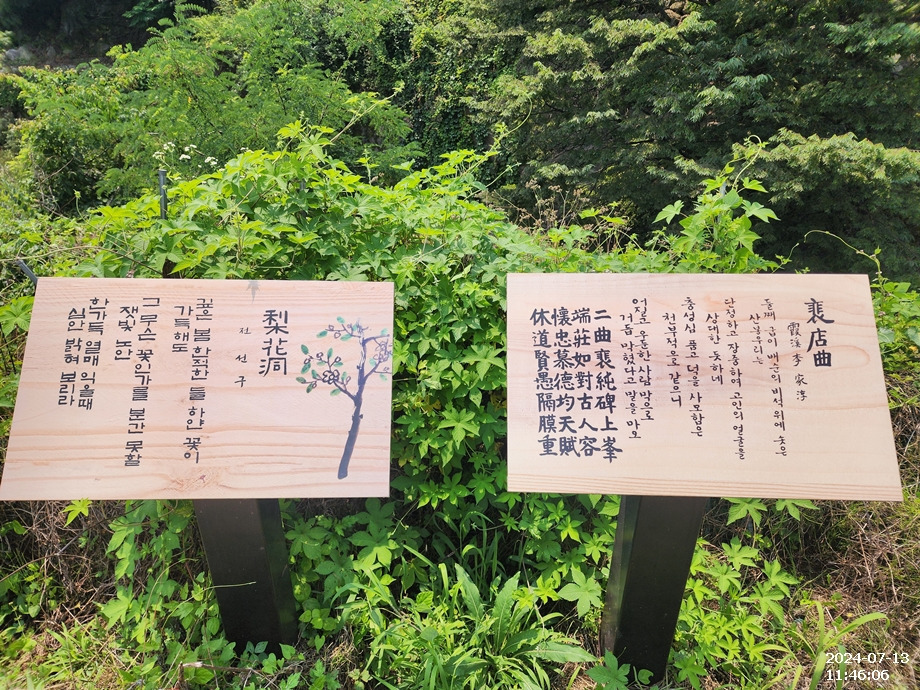 梨花洞
전선구
깊은 봄 한적한 들 하얀 꽃이
가득해도
그 무슨 꽃인가를 분간 못할
잿빛 노안
한가득 열매 익을때
심안 밝혀 보리라
裵店曲
霞溪 李家淳
둘째 굽이 배순의 비석 위에 솟은
산봉우리는
단정하고 장중하여 고인의 얼굴을
상대한 듯하네
충성심 품고 덕을 사모함은
천부적으로 같으니
어질고 우둔한 사람 막으로
거듭 막혔다고 말을 마오
二曲裵純碑上峯
端莊如對古人容
懷忠慕德均天賦
休道賢愚隔膜重
2024-07-13
11:46:06